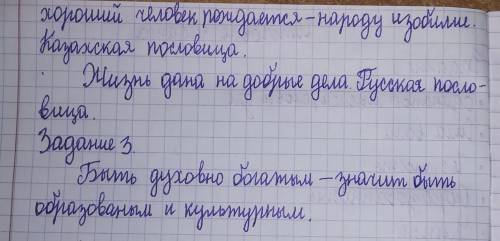 хороший человек рождается – народу изобилие.
Казахская пословица.
Жизнь дана на добрые дела. Русская посло-
вица.
Задание 3.
Быть духовно богатым – значит быть
образованым и культурным.